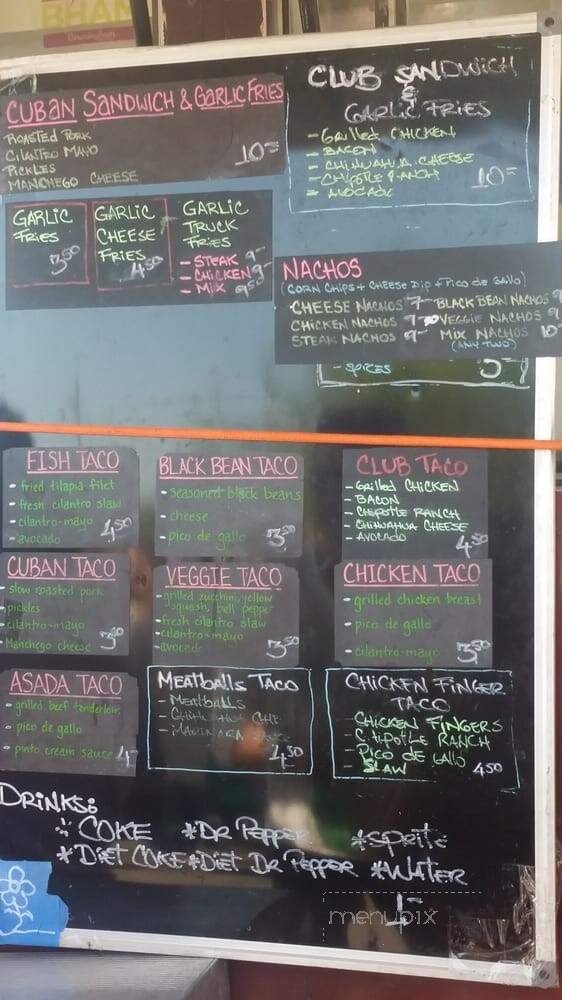 BHAM
CUBAN SANDWICH & GARLIC FRIES
ROASTED PORK
CILANTRO MAYO
PICKLES
MANCHEGO CHEESE
10=
CLUB SANDWICH
&
GARLIC FRIES
- Grilled CHICKEN
- BACON
- CHIHUAHUA CHEESE
- CHIPOTLE RANCH
- AVOCADO
10=
GARLIC
FRIES
3.50
GARLIC
CHEESE
FRIES
4.50
GARLIC
TRUCK
FRIES
- STEAK 9-
- CHICKEN 9-
- MIX 9.50
NACHOS
(CORN CHIPS + CHEESE DIP + PICO DE GALLO)
CHEESE NACHOS 7-
BLACK BEAN NACHOS 9
CHICKEN NACHOS
VEGGIE NACHOS 9
STEAK NACHOS 9-
MIX NACHOS 10-
(ANY TWO)
- SPICES
5-
FISH TACO
• fried tilapia filet
• fresh cilantro slaw
• cilantro-mayo
• avocado
4.50
BLACK BEAN TACO
• seasoned black beans
• cheese
• pico de gallo
3.50
CLUB TACO
- Grilled CHICKEN
- BACON
- CHIPOTLE RANCH
- CHIHUAHUA CHEESE
- AVOCADO
4.50
CUBAN TACO
• slow roasted pork
• pickles
• cilantro-mayo
• Manchego cheese
3.50
VEGGIE TACO
• grilled zucchini, yellow
squash, bell pepper
• fresh cilantro slaw
• cilantro-mayo
• avocado
3.50
CHICKEN TACO
• grilled chicken breast
• pico de gallo
• cilantro-mayo
3.50
ASADA TACO
• grilled beef tenderloin
• pico de gallo
• pinto cream sauce
4-
MEATBALLS TACO
- MEATBALLS
- MARINARA
4.50
CHICKEN FINGER
TACO
- CHICKEN FINGERS
- CHIPOTLE RANCH
- PICO DE GALLO
- SLAW
4.50
DRINKS:
* COKE * DR PEPPER * SPRITE
* DIET COKE * DIET DR PEPPER * WATER
1-
menupix